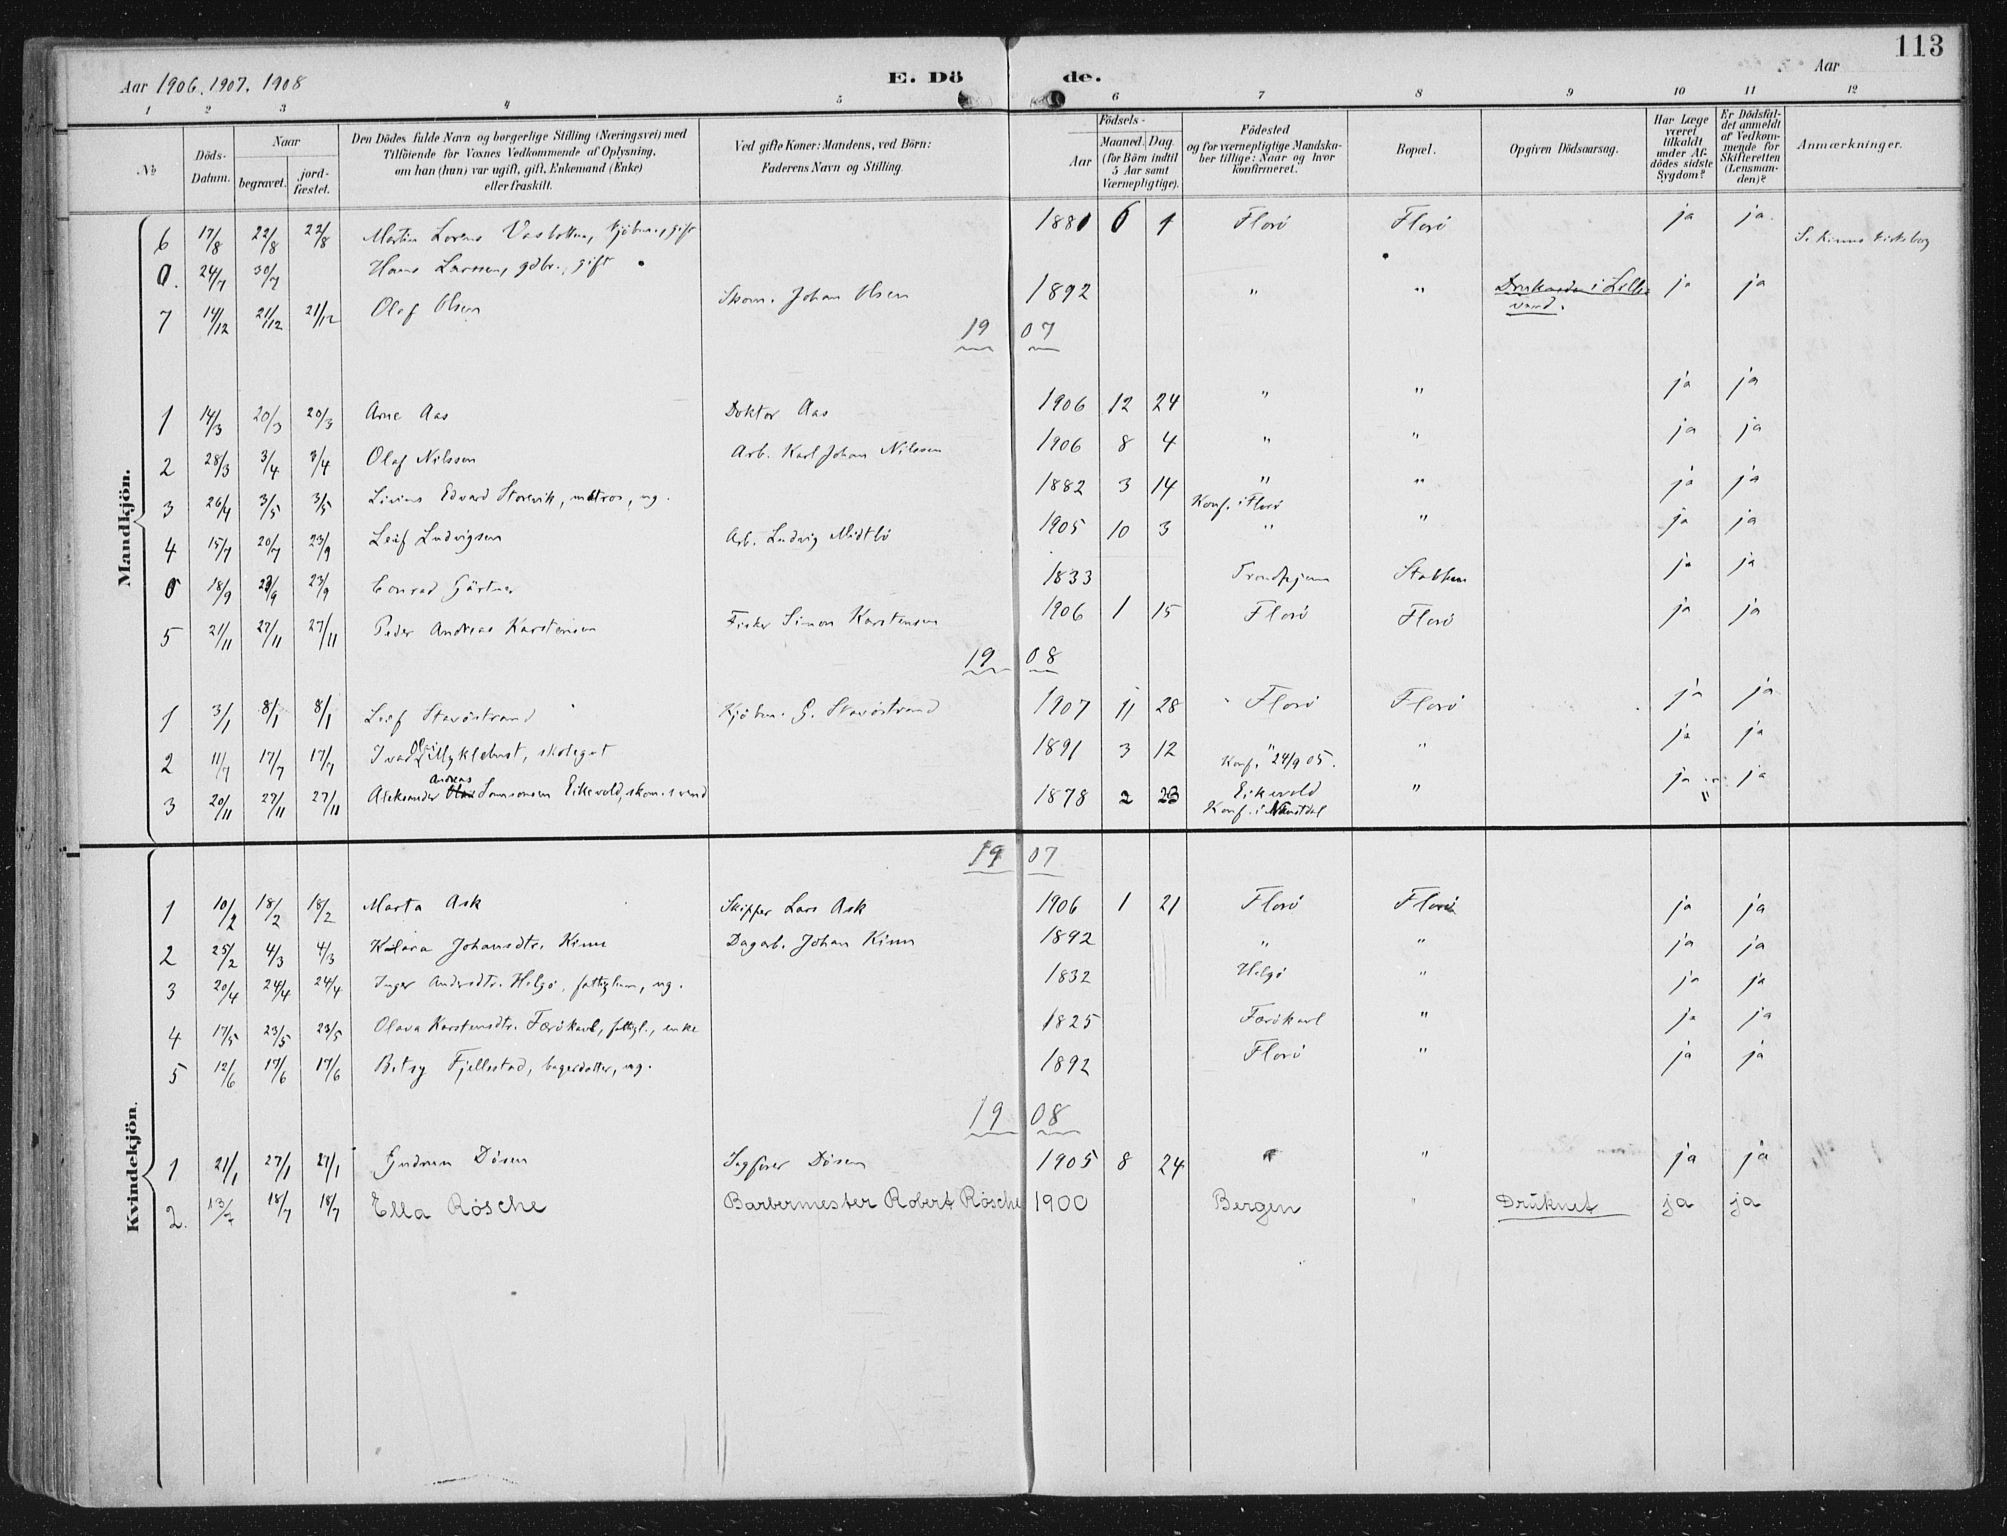 113
Aar 1906, 1907, 1908 E. Dö de. Aar
1 2 3 4 5 6 7 8 9 10 11 12
№ Döds-Datum. Naar begravet. jord-fæstet. Den Dödes fulde Navn og borgerlige Stilling (Næringsvei) med Tilföiende for Voxnes Vedkommende af Oplysning, om han (hun) var ugift, gift, Enkemand (Enke) eller fraskilt. Ved gifte Koner: Mandens, ved Börn: Faderens Navn og Stilling. Födsels- Aar Maaned. Dag. (for Börn indtil 5 Aar samt Værnepligtige). Födested og for værnepligtige Mandskaber tillige: Naar og hvor konfirmeret. Bopæl. Opgiven Dödsaarsag. Har Læge været tilkaldt under Afdödes sidste Sygdom? Er Dödsfaldet anmeldt af Vedkommende for Skifteretten (Lensmanden)? Anmærkninger.
Mandkjön.
6 17/8 22/8 22/8 Martin Lorens Vasbotten, kjøbm., gift 1880 6 1 Florö Florö ja ja.
0. 24/7 30/7 Hans Larssen, gdbr., gift S. Kinns kirkebog
7 14/12 21/12 21/12 Olaf Olsen Skom. Johan Olsen 1892 " " Druknede i Lille- ja ja
vand.
19 07
1 14/3 20/3 20/3 Arne Aas Doktor Aas 1906 12 24 " " ja ja
2 28/3 3/4 3/4 Olaf Nilssen Arb. Karl Johan Nilssen 1906 8 4 " " ja ja
3 26/4 3/5 3/5 Sivius Edvard Storevik, matros, ug. 1882 3 14 " " ja ja
Konf. i Florö
4 15/7 20/7 23/9 Leif Ludvigsen Arb. Ludvig Midtbö 1905 10 3 " " ja ja
0 18/9 23/9 23/9 Conrad Gärtner 1833 Trondhjem Stabben ja ja
5 21/11 27/11 27/11 Peder Andreas Karstensen Fisker Simon Karstensen 1906 1 15 Florö Florö ja ja
19 08
1 3/1 8/1 8/1 Leif Stavöstrand Kjöbm. G. Stavöstrand 1907 11 28 Florö Florö ja ja
2 11/7 17/7 17/7 Ivar Myklebust, skolegut 1891 3 12 " " ja ja
Konf. 24/9 05.
3 20/11 27/11 27/11 Aleksander Andreas Samsonsen Eikevold, skom. svend 1878 2 23 Eikevold " ja ja
Konf. i Naustdal
Kvindekjön.
19 07
1 10/2 18/2 18/2 Marta Ask Skipper Lars Ask 1906 1 21 Florö Florö ja ja
2 25/2 4/3 4/3 Klara Johansdtr. Kinn Dagarb. Johan Kinn 1892 " " ja ja
3 20/4 24/4 24/4 Inger Andersdtr. Helgö, fattiglem, ug. 1832 Helgö " ja ja
4 17/5 23/5 23/5 Olava Karstensdtr. Færökavl, fattigl., enke 1825 Færökavl " ja ja
5 12/6 17/6 17/6 Betsy Fjellestad, bagerdatter, ug. 1892 Florö " ja ja
19 08
1 21/1 27/1 27/1 Gudrun Dösen Sagfører Dösen 1905 8 24 " " ja ja
2. 13/7 18/7 18/7 Ella Rösche Barbermester Robert Rösche 1900 Bergen " Druknet ja ja